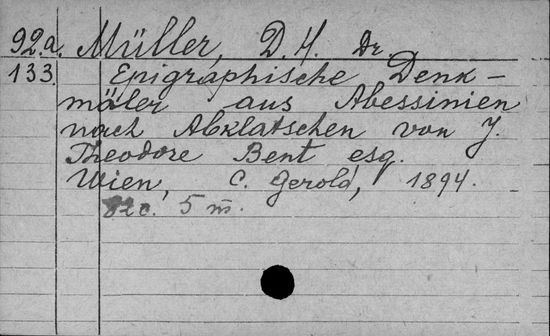 92.a. Müller, D. H. Dr.
133. Epigraphische Denk-
mäler aus Abessinien
nach Abklatschen von J.
Theodore Bent esq.
Wien, C. Gerold, 1894.
5 m.